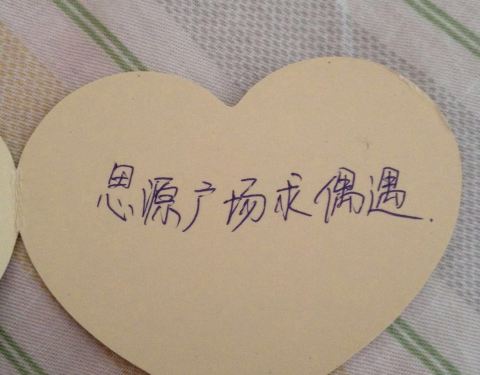 思源广场求偶遇.